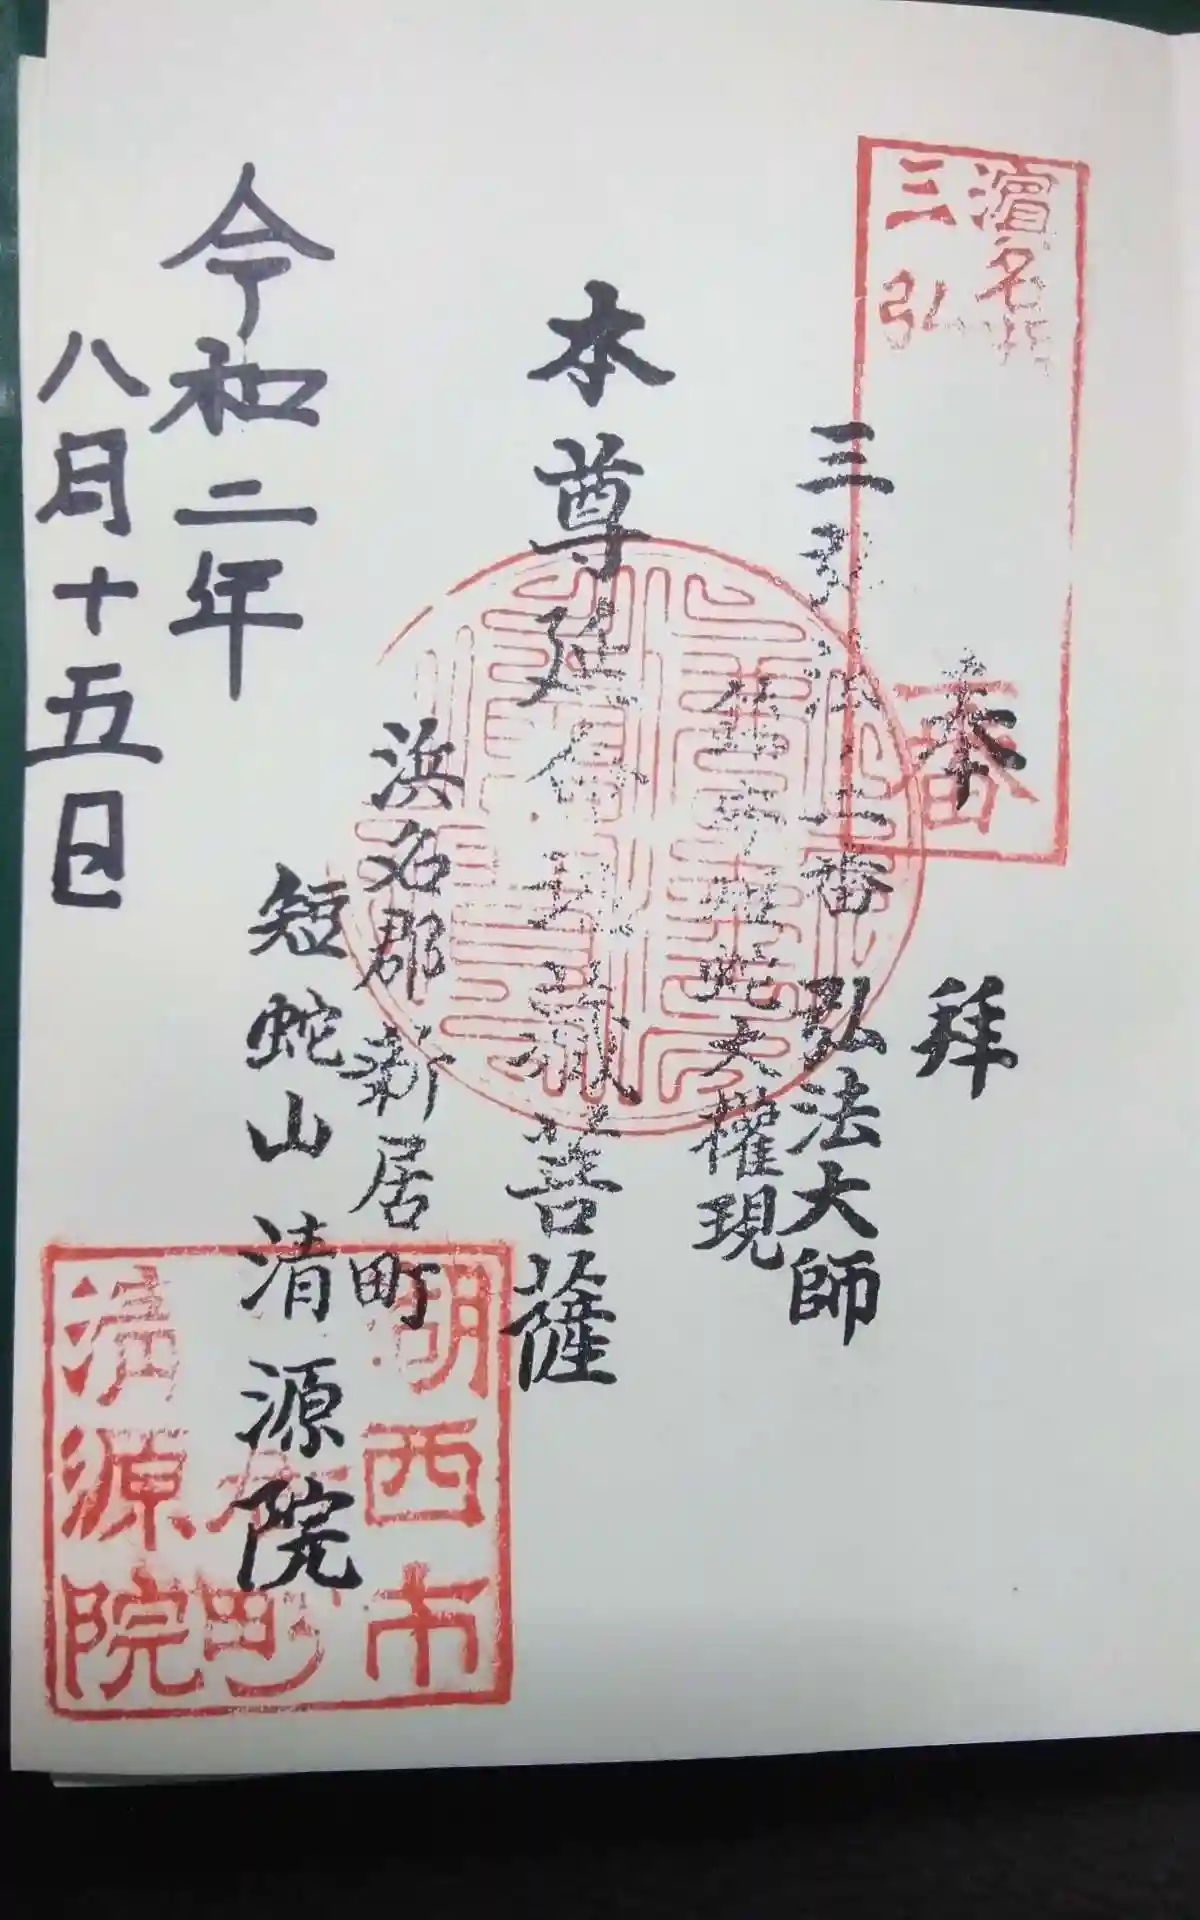 三弘
番
奉拜
弘法大師
大權現
本尊延命地蔵菩薩
浜名郡新居町
短蛇山清源院
令和二年
八月十五日
湖西市
町
清源院